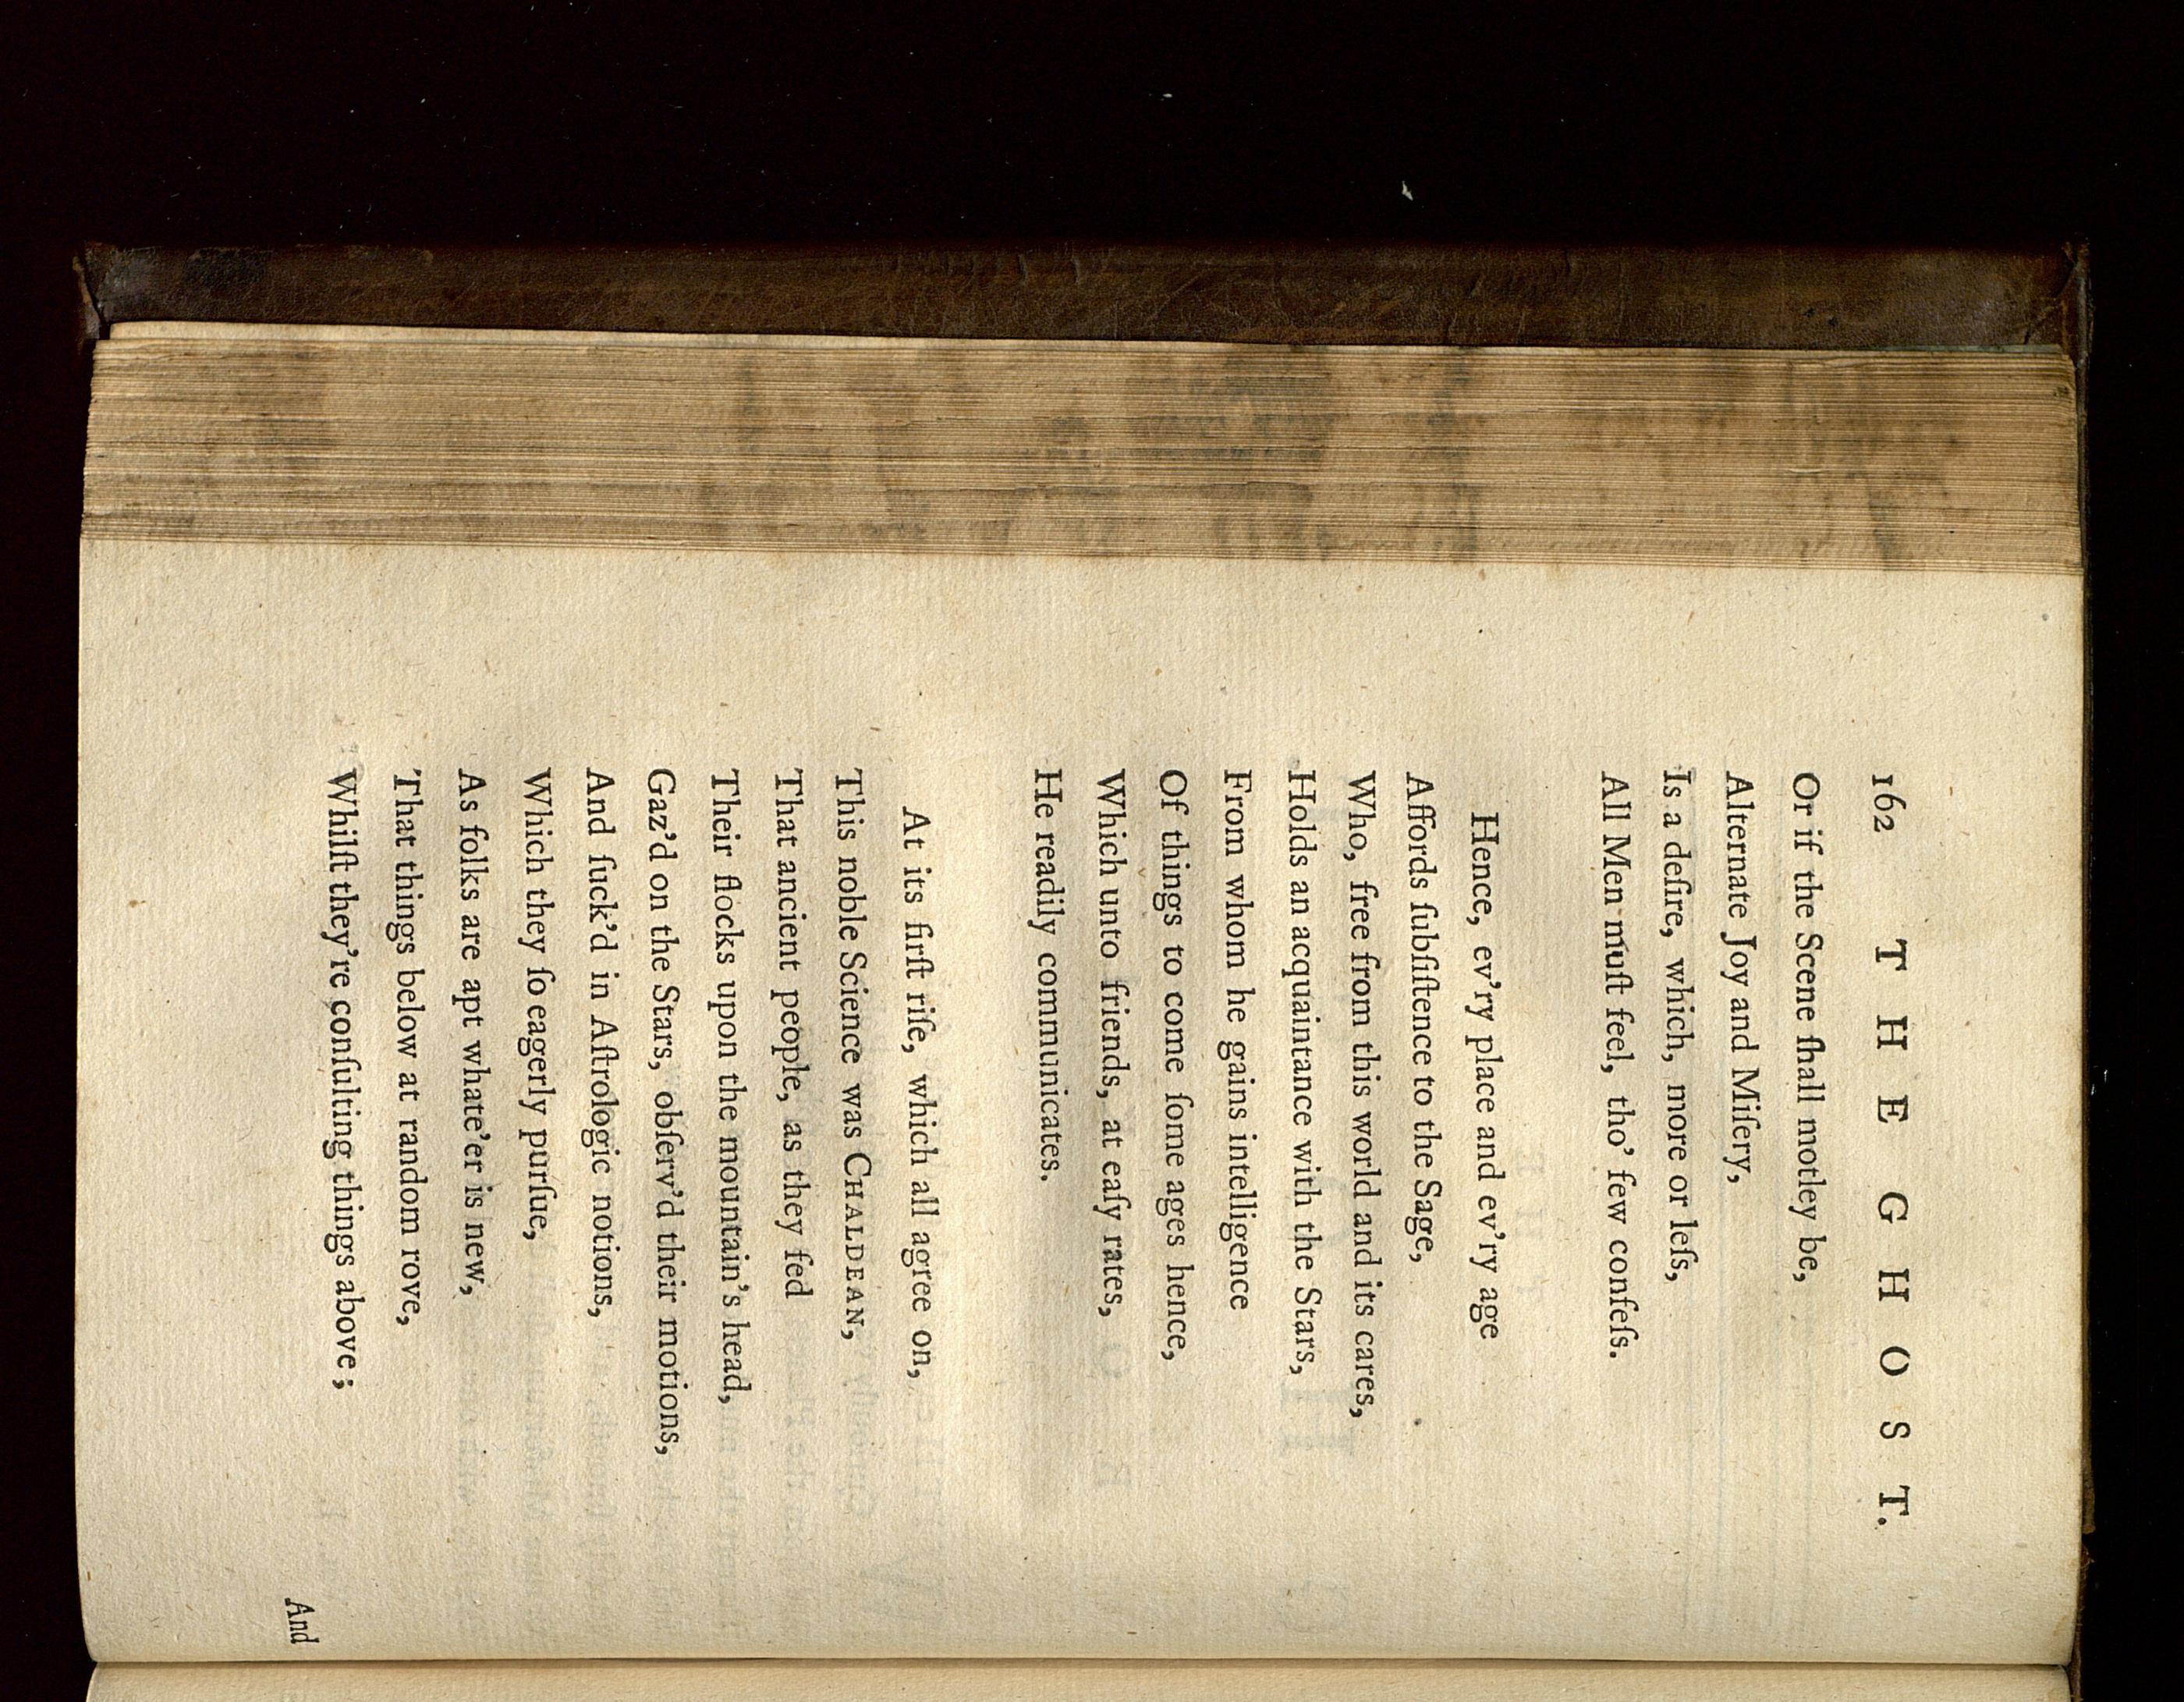 162 THE GHOST.
Or if the Scene ſhall motley be,
Alternate Joy and Miſery,
Is a deſire, which, more or leſs,
All Men muſt feel, tho' few confeſs.
Hence, ev'ry place and ev'ry age
Affords ſubſiſtence to the Sage,
Who, free from this world and its cares,
Holds an acquaintance with the Stars,
From whom he gains intelligence
Of things to come ſome ages hence,
Which unto friends, at eaſy rates,
He readily communicates.
At its firſt riſe, which all agree on,
This noble Science was CHALDEAN,
That ancient people, as they fed
Their flocks upon the mountain's head,
Gaz'd on the Stars, obſerv'd their motions,
And ſuck'd in Aſtrologic notions,
Which they ſo eagerly purſue,
As folks are apt whate'er is new,
That things below at random rove,
Whilſt they're conſulting things above;
And